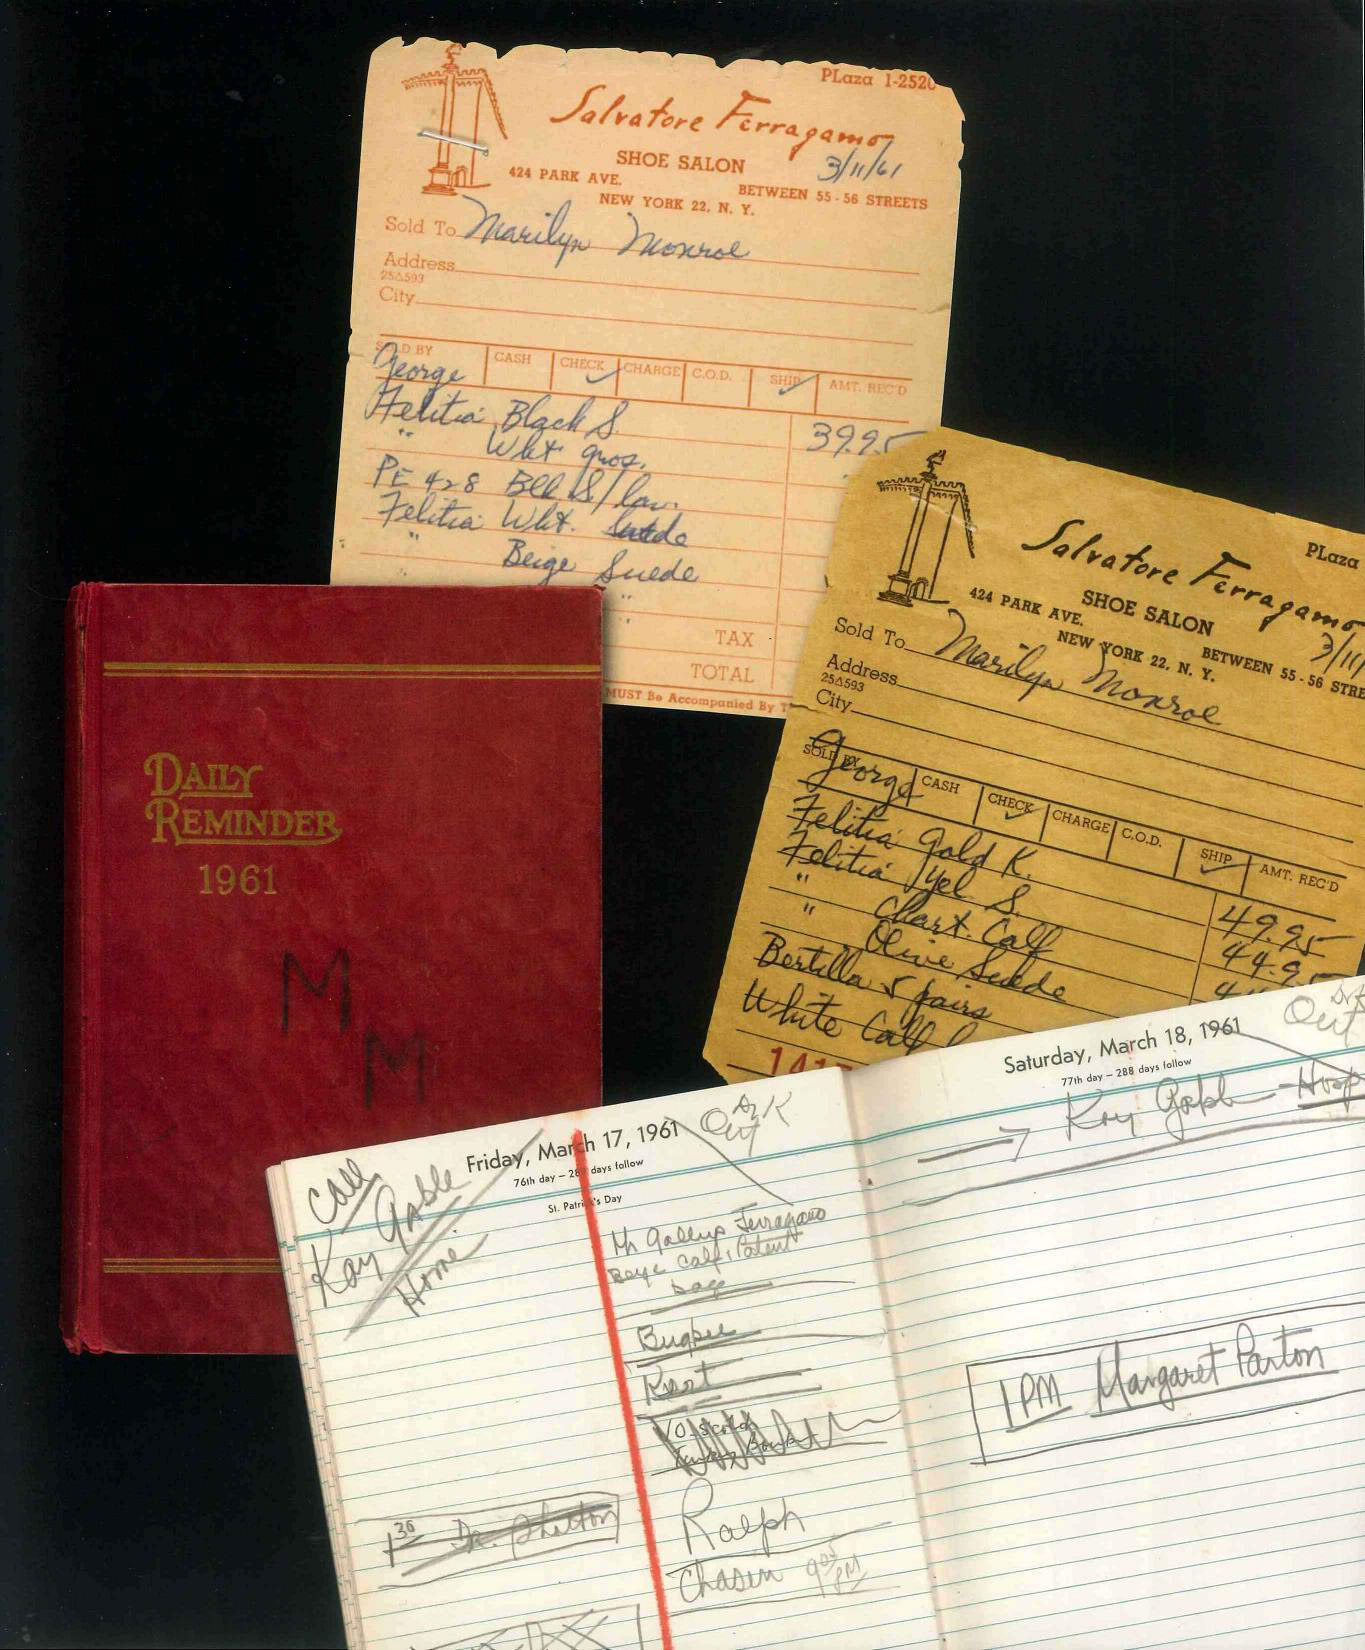 PLaza 1-2520
Salvatore Ferragamo
SHOE SALON
3/11/61
424 PARK AVE.
BETWEEN 55 - 56 STREETS
NEW YORK 22, N. Y.
Sold To Marilyn Monroe
Address
25△593
City
SOLD BY CASH CHECK CHARGE C.O.D. SHIP AMT. REC'D
George
Felitia Black S. 39.95
" Wht gros.
PE 428 Blk S/
Felitia Wht. Suede
" Beige Suede
"
TAX
TOTAL
MUST Be Accompanied By T
PLaza
Salvatore Ferragamo
SHOE SALON
3/11/
424 PARK AVE.
BETWEEN 55 - 56 STRE
NEW YORK 22, N. Y.
Sold To Marilyn Monroe
Address
25△593
City
SOLD BY CASH CHECK CHARGE C.O.D. SHIP AMT. REC'D
George
Felitia Gold K. 49.95
Felitia Yel S. 44.95
" Chart. Calf 4
" Olive Suede
Bertilla 5 pairs
White Calf
141
DAILY
REMINDER
1961
M
M
Friday, March 17, 1961
76th day – 28 days follow
St. Patrick's Day
Dr K
Out
Call
Kay Gable
Home
Mr Gallup Ferragamo
Beige Calf, Patent
Bugbee
Kent
Ralph
Chasen 9 PM
1 30 Dr.
Saturday, March 18, 1961
77th day – 288 days follow
Dr
Out
Kay Gable Hosp
1 PM Margaret Parton